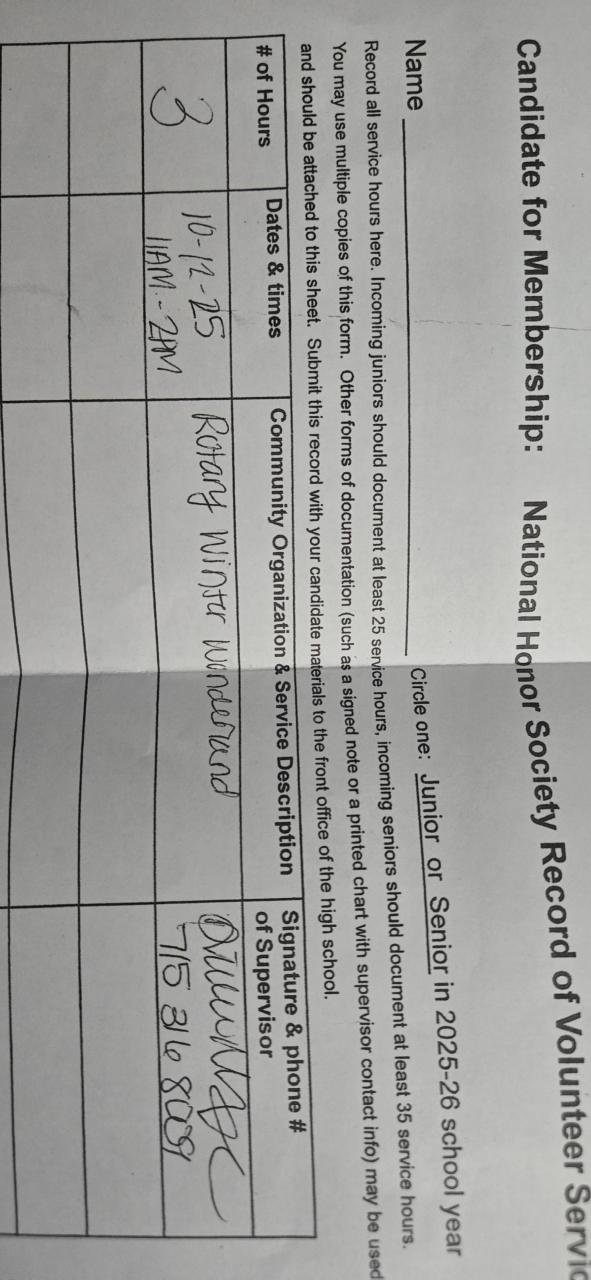 Candidate for Membership: National Honor Society Record of Volunteer Servic
Name
Circle one: Junior or Senior in 2025-26 school year
Record all service hours here. Incoming juniors should document at least 25 service hours, incoming seniors should document at least 35 service hours.
You may use multiple copies of this form. Other forms of documentation (such as a signed note or a printed chart with supervisor contact info) may be used
and should be attached to this sheet. Submit this record with your candidate materials to the front office of the high school.
# of Hours
Dates & times
Community Organization & Service Description
Signature & phone #
of Supervisor
3
10-12-25
11AM-2PM
Rotary Winter Wonderand
715 316 8009